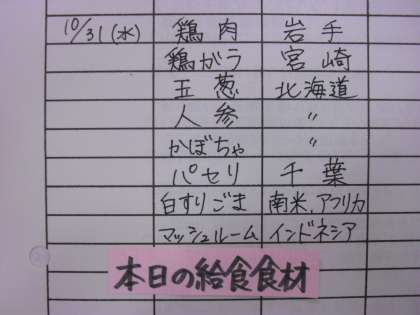 10/31(水) 鶏肉 岩手
鶏がら 宮崎
玉葱 北海道
人参 〃
かぼちゃ 〃
パセリ 千葉
白すりごま 南米、アフリカ
マッシュルーム インドネシア
本日の給食食材